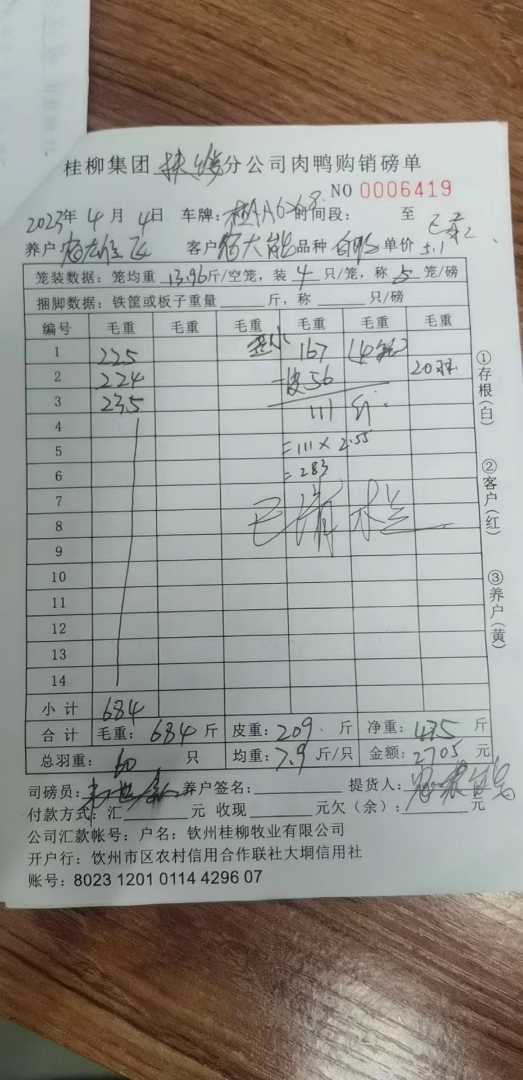 桂柳集团 扶绥 分公司肉鸭购销磅单
NO 0006419
2023年 4 月 4日 车牌: 桂AA6 时间段: 至
养户 客户 大能 品种 白鸭 单价 5.1
笼装数据: 笼均重 13.96斤/空笼, 装 4 只/笼, 称 5 笼/磅
捆脚数据: 铁筐或板子重量 斤, 称 只/磅
编号 毛重 毛重 毛重 毛重 毛重 毛重
1 225 167 (4笼)
2 224 皮56 20只
3 235 111斤
4
5 =111×2.55
6 =283
7
8 已清栏
9
10
11
12
13
14
小 计 684
合 计 毛重: 684 斤 皮重: 209 斤 净重: 475 斤
总羽重: 60 只 均重: 7.9 斤/只 金额: 2705 元
司磅员: 养户签名: 提货人:
付款方式: 汇 元 收现 元欠(余): 元
公司汇款帐号: 户名: 钦州桂柳牧业有限公司
开户行: 饮州市区农村信用合作联社大垌信用社
账号: 8023 1201 0114 4296 07
①存根(白)
②客户(红)
③养户(黄)